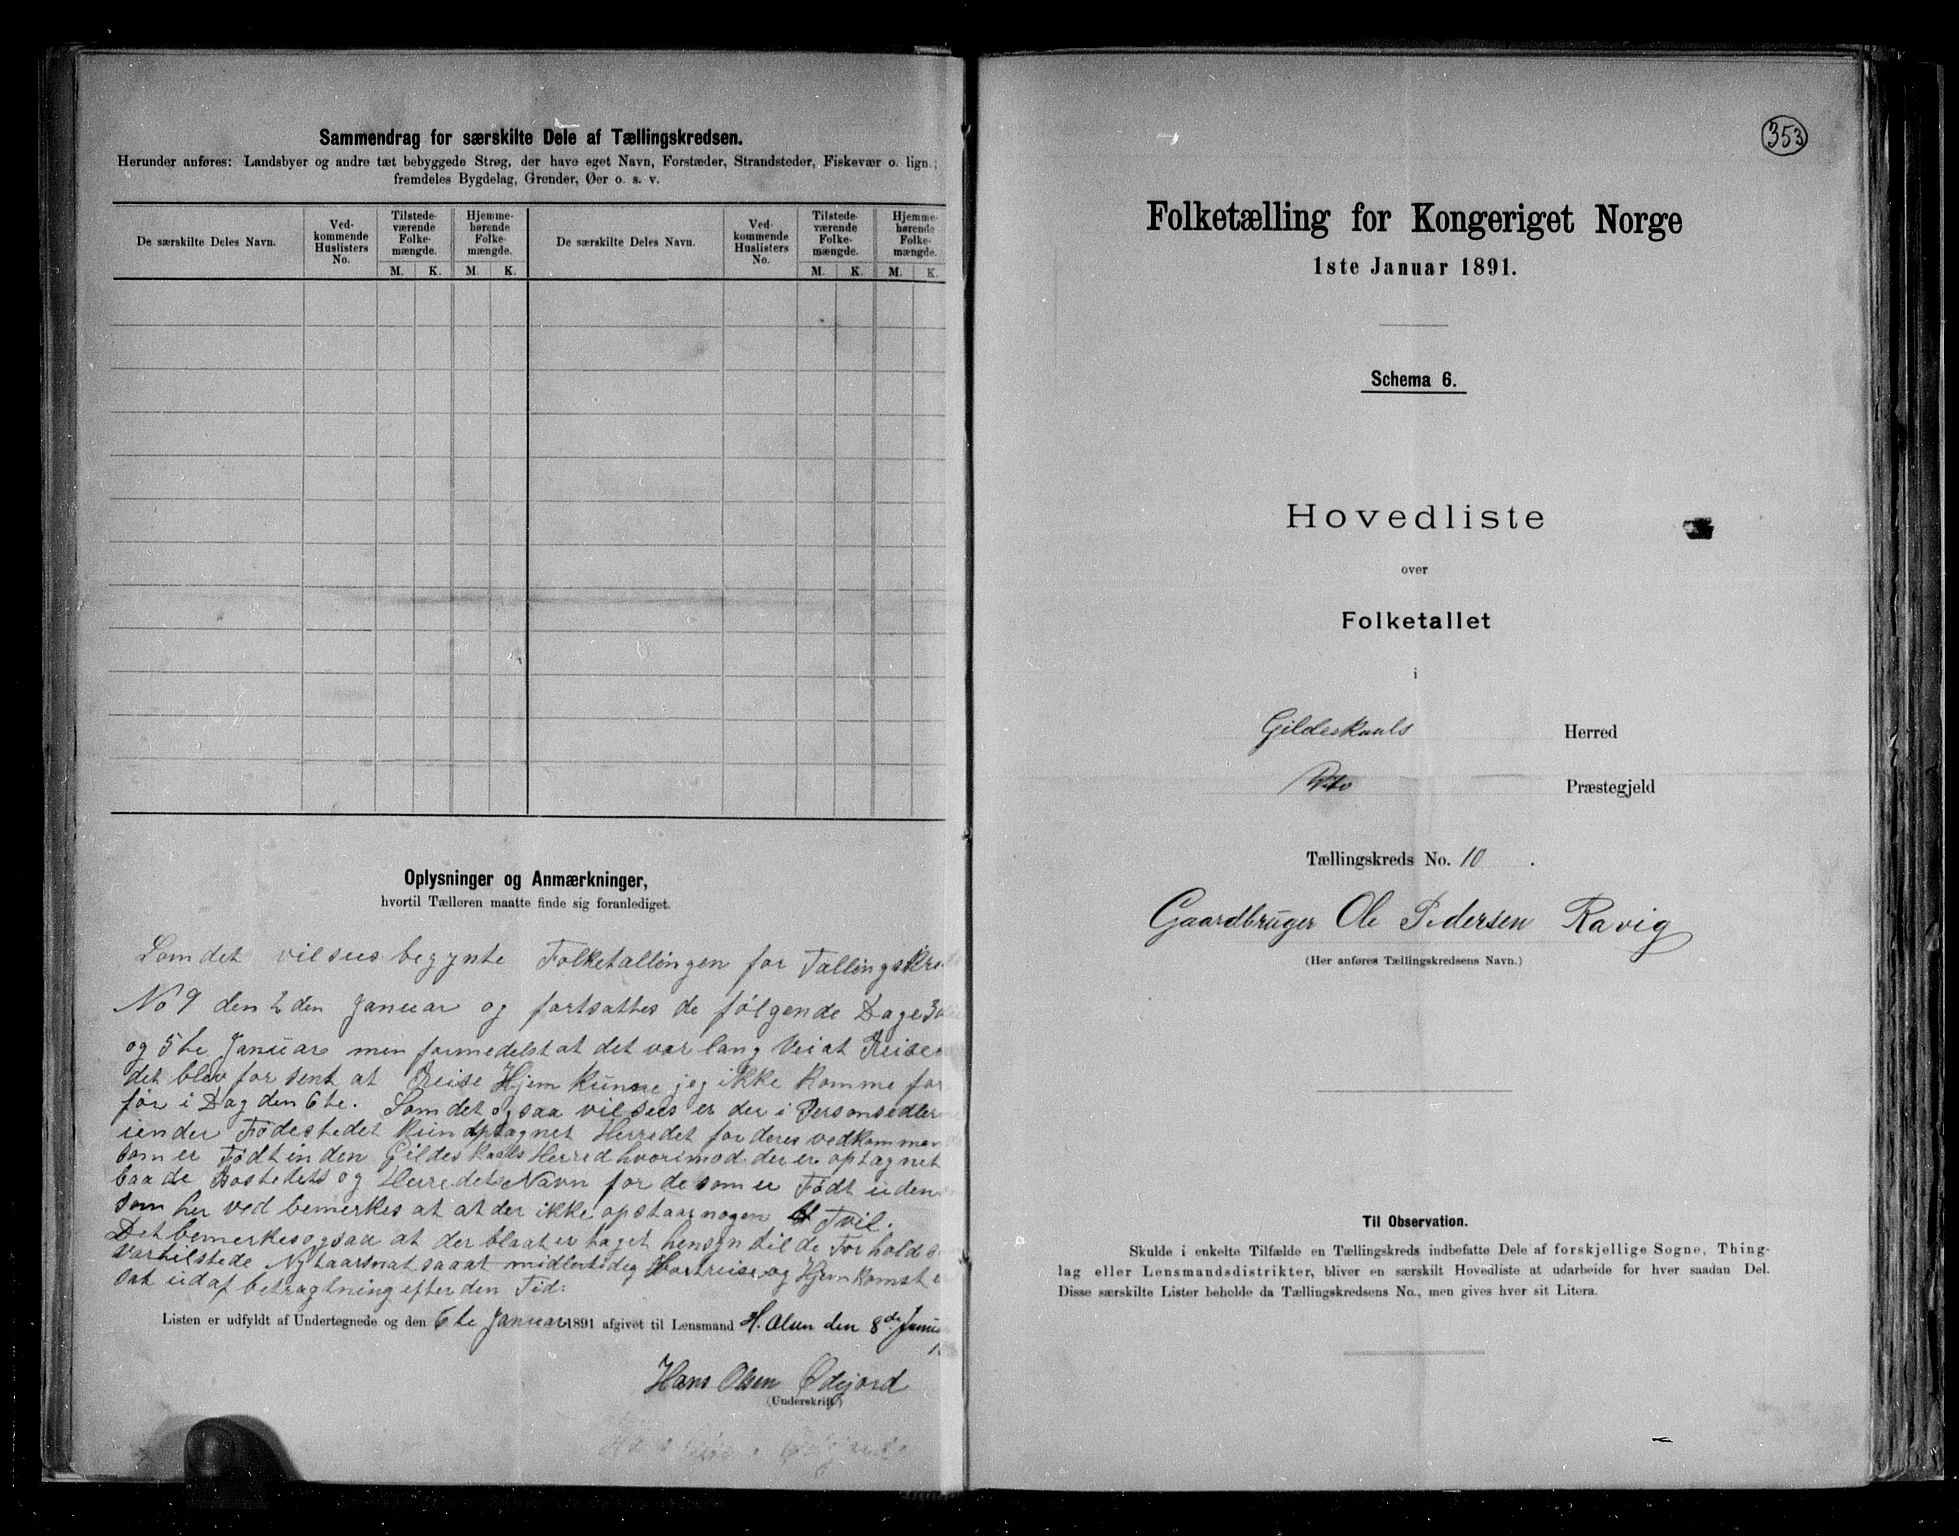 Sammendrag for særskilte Dele af Tællingskredsen.
Herunder anføres: Landsbyer og andre tæt bebyggede Strøg, der have eget Navn, Forstæder, Strandsteder, Fiskevær o. lign.;
fremdeles Bygdelag, Grender, Øer o. s. v.
De særskilte Deles Navn.
Ved-
kommende
Huslisters
No.
Tilstede-
værende
Folke-
mængde.
Hjemme-
hørende
Folke-
mængde.
De særskilte Deles Navn.
Ved-
kommende
Huslisters
No.
Tilstede-
værende
Folke-
mængde.
Hjemme-
hørende
Folke-
mængde.
M. K. M. K. M. K. M. K.
Oplysninger og Anmærkninger,
hvortil Tælleren maatte finde sig foranlediget.
Somdet vilsees begynte Folketallingen for Tallings
No 9 den 2 den Januar og fortsattes de følgende Dage 3
og 5te Januar men formedelst at det var lang Vei at Reise
det blev for sent at Reise Hjem kunne jeg ikke komme for
før i Dag den 6te. Somdet ogsaa vilsees er der i Personsedler
under Fødestedet kun optagnet Herredet for deres vedkommen
som er Født inden Gildeskaals Herred hvorimod der er optagnet
baade Bostedets og Herredets Navn for de som er Født uden
som her ved bemerkes at at der ikke opstaar nogen Tvil.
Det bemerkes ogsaa at der blaat er taget hensyn til de Forhold
var tilstede Nytaarsnat saaat midlertidig Bortreise og Hjemkomst
sat udaf betragtning efter den Tid:
Listen er udfyldt af Undertegnede og den 6te Januar 1891 afgivet til Lensmand H. Olsen den 8de Janu
Hans Olsen Ødejord
(Underskrift)
353
Folketælling for Kongeriget Norge
1ste Januar 1891.
Schema 6.
Hovedliste
over
Folketallet
i
Gildeskaals Herred
Dito Præstegjeld
Tællingskreds No. 10.
Gaardbruger Ole Pedersen Ravig
(Her anføres Tællingskredsens Navn.)
Til Observation.
Skulde i enkelte Tilfælde en Tællingskreds indbefatte Dele af forskjellige Sogne, Thing-
lag eller Lensmandsdistrikter, bliver en særskilt Hovedliste at udarbeide for hver saadan Del.
Disse særskilte Lister beholde da Tællingskredsens No., men gives hver sit Litera.